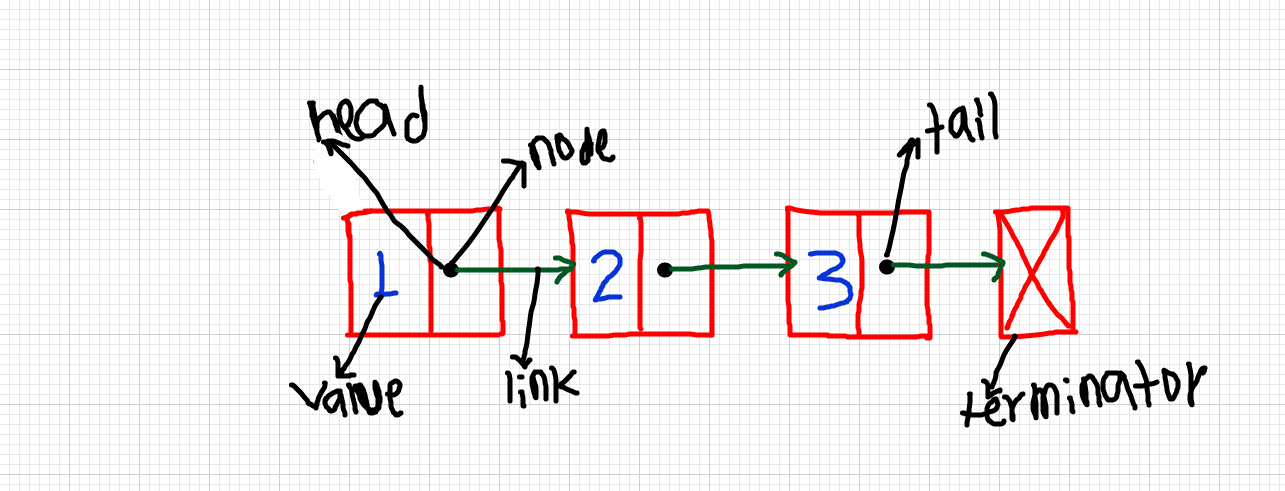 head
node
tail
1
2
3
value
link
terminator